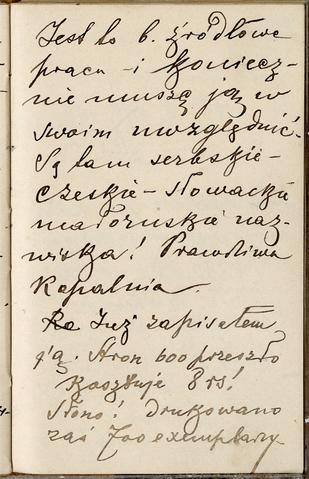 Jest to b. źródłowe
praca – i koniecz-
nie muszę ją w
swoim uwzględnić.
Są tam serbskie –
czeskie – słowackie
małoruskie naz-
wiska! Prawdziwa
Kopalnia.
Już zapisałem
ją. Stron 600 przeszło
Kosztuje 8 rs!
Słono! Drukowano
zaś 700 exemplarzy